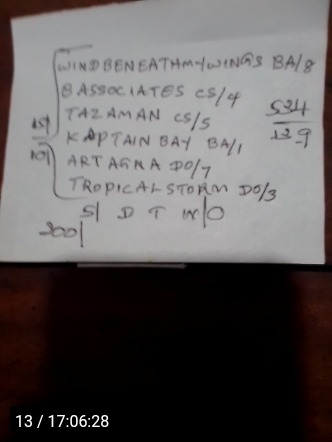 WINDBENEATHMYWINGS BA/8
8 ASSOCIATES CS/4
TAZAMAN CS/5
KAPTAIN BAY BA/1
ARTAGNA DO/7
TROPICALSTORM DO/3
S/ D T W/O
300/
534
129
13 / 17:06:28